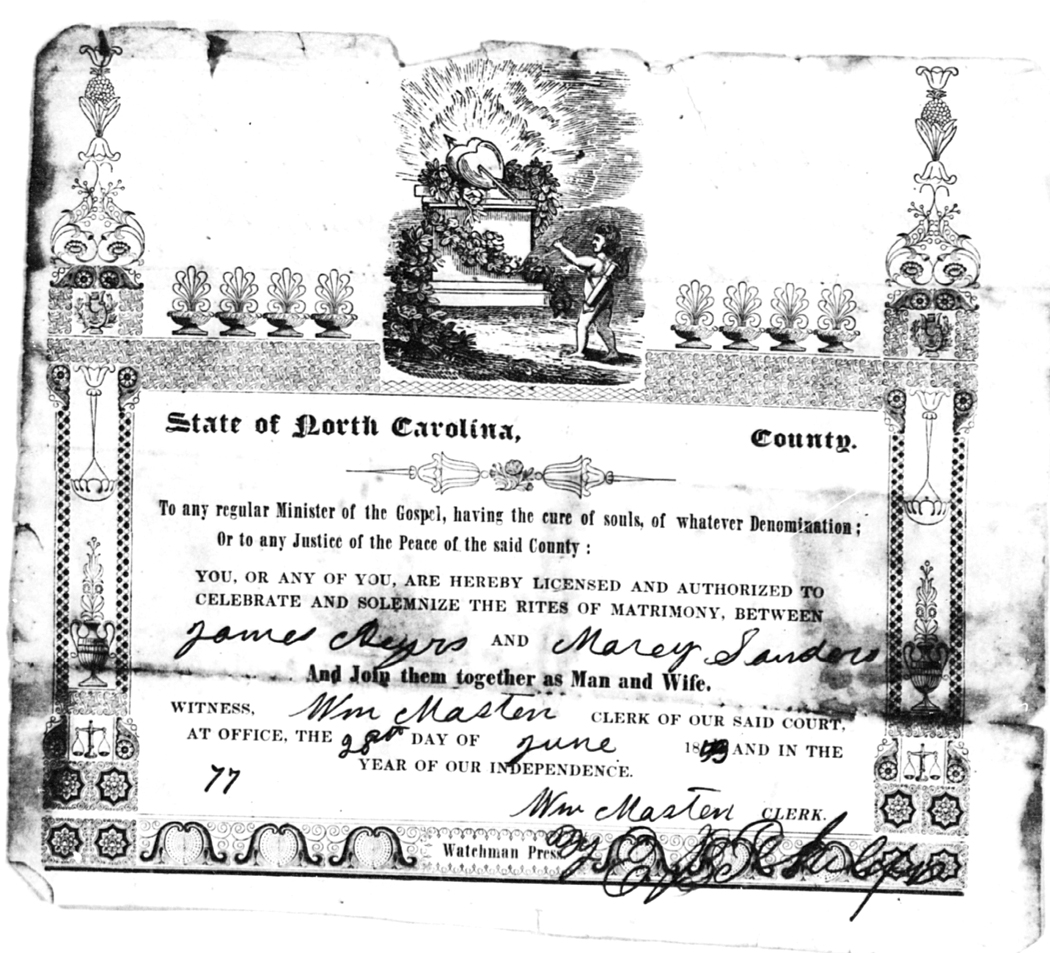 State of North Carolina, County.
To any regular Minister of the Gospel, having the cure of souls, of whatever Denomination;
Or to any Justice of the Peace of the said County:
YOU, OR ANY OF YOU, ARE HEREBY LICENSED AND AUTHORIZED TO
CELEBRATE AND SOLEMNIZE THE RITES OF MATRIMONY, BETWEEN
James AND Marey Sanders
And Join them together as Man and Wife.
WITNESS, Wm Masten CLERK OF OUR SAID COURT,
AT OFFICE, THE 28th DAY OF June 18 AND IN THE
77 YEAR OF OUR INDEPENDENCE.
Wm Masten CLERK.
Watchman Press
By